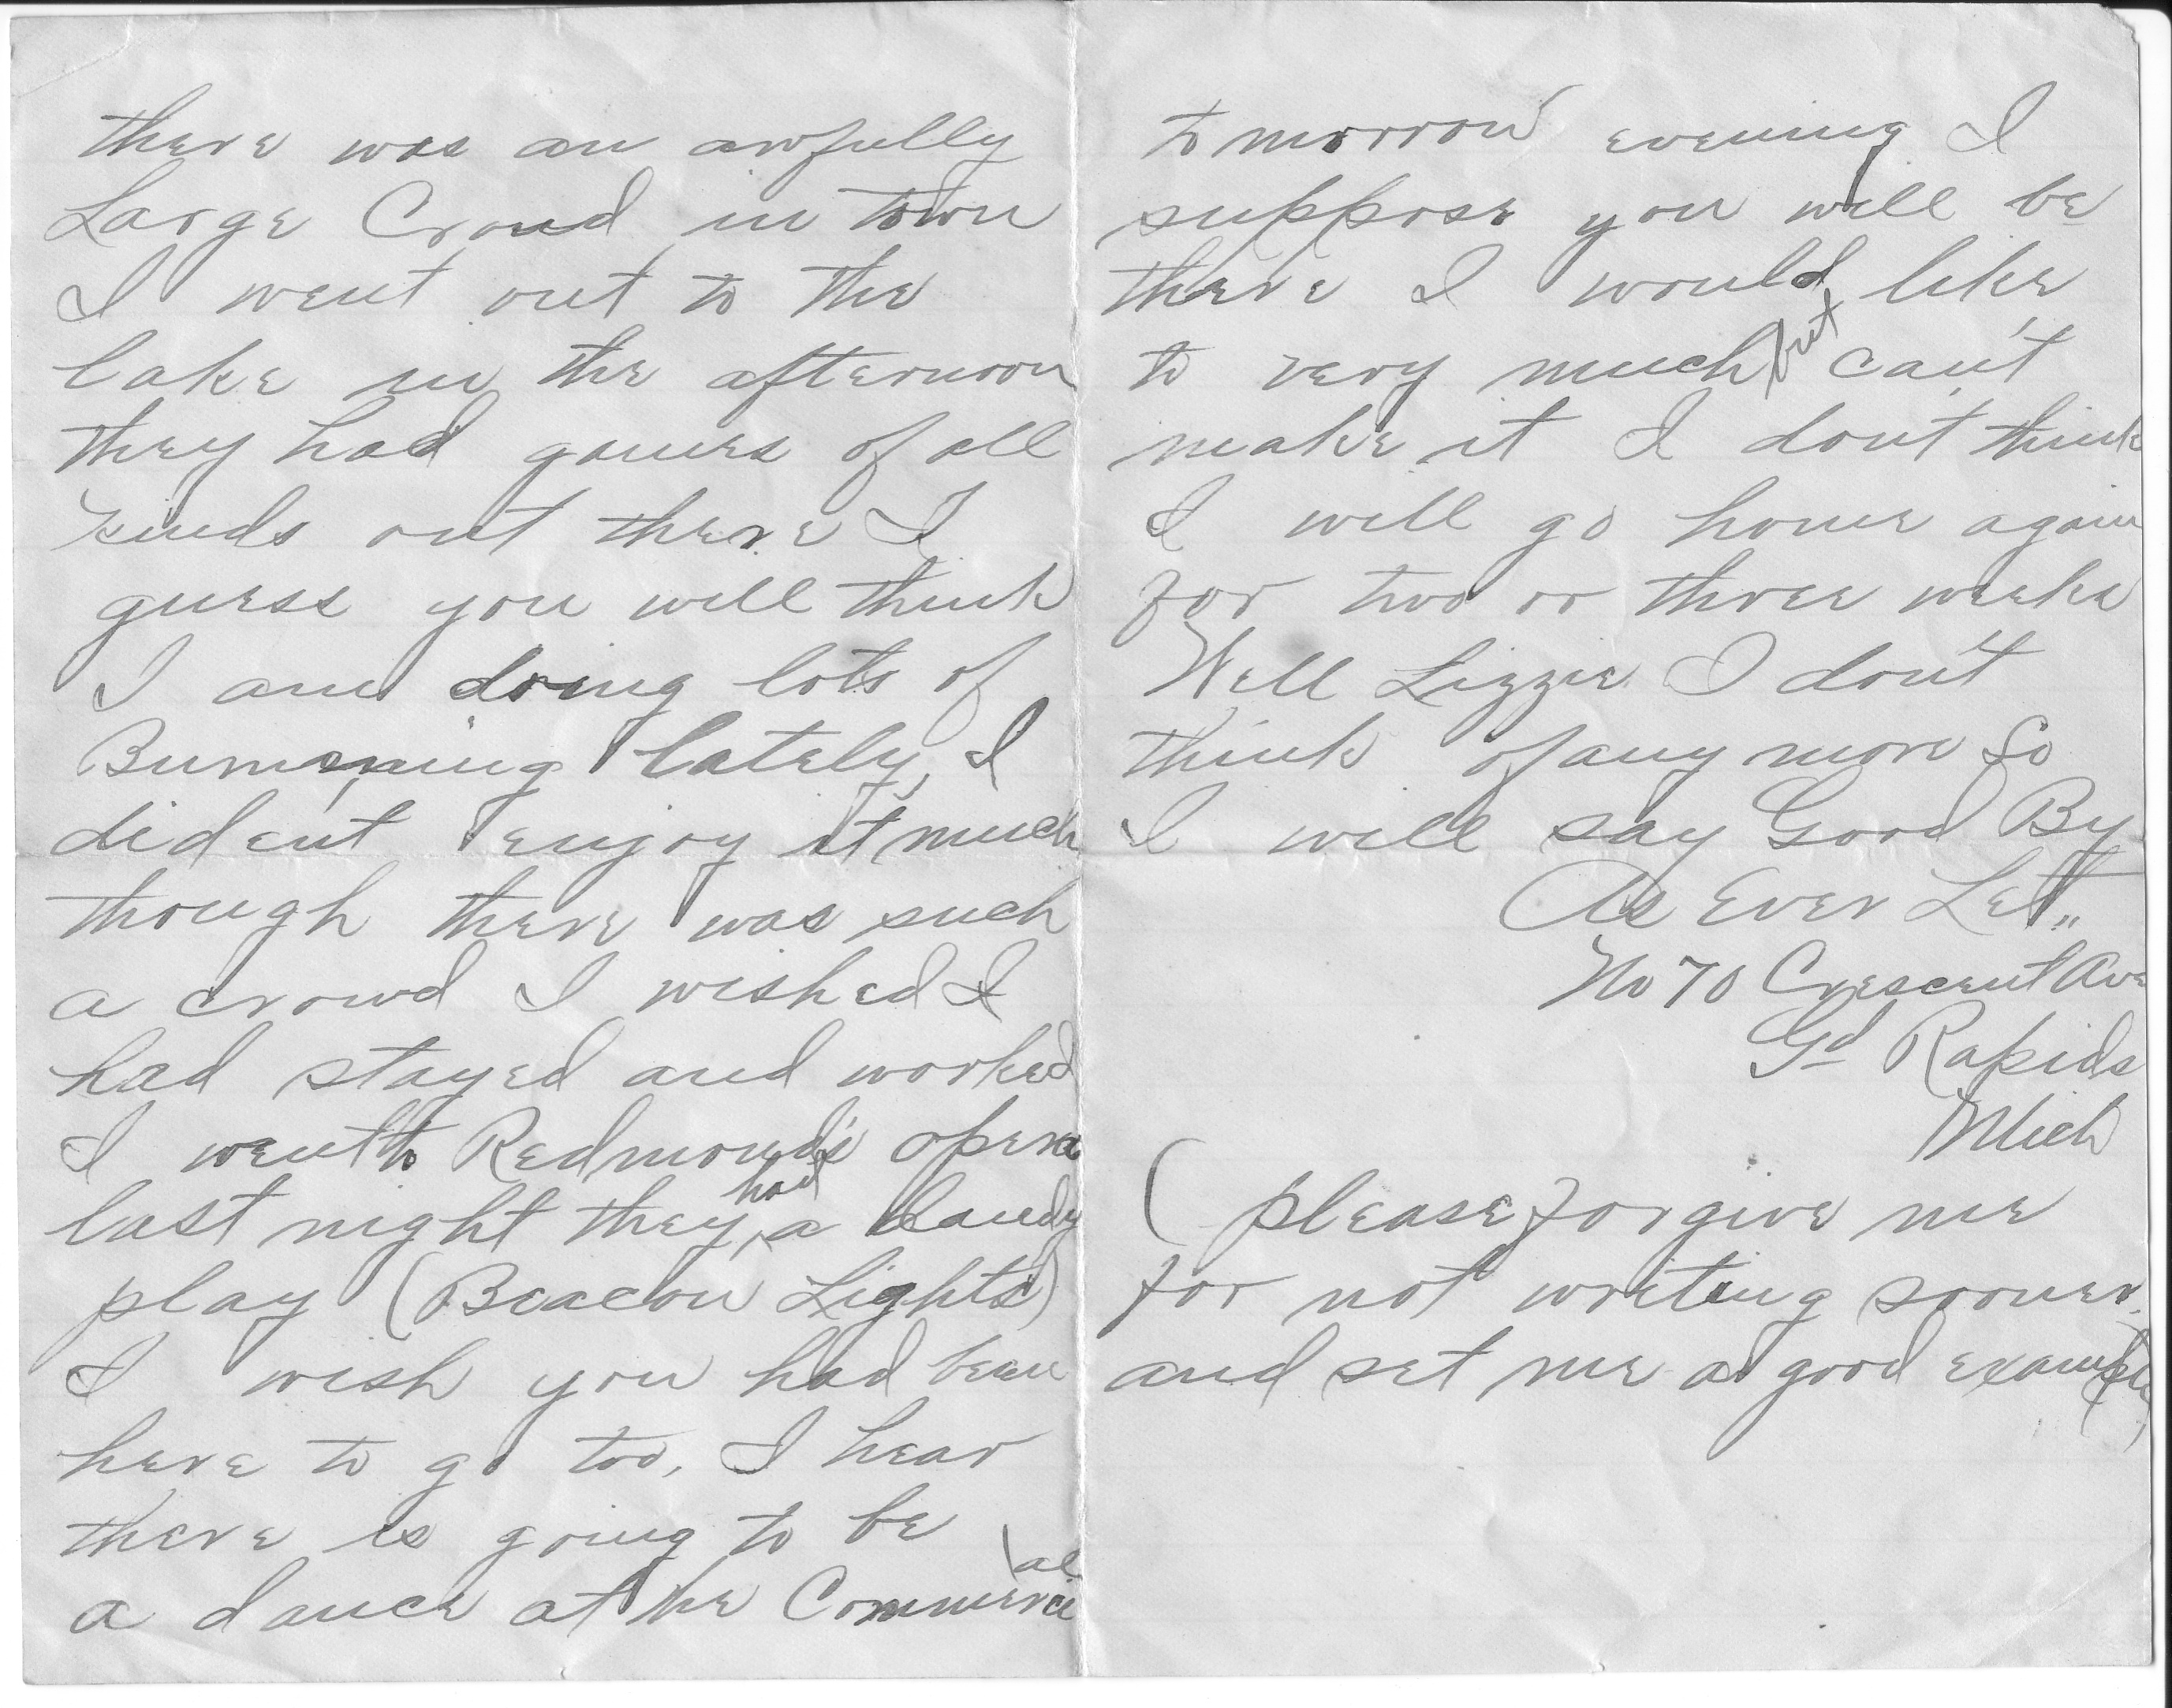 there was an awfully
Large Crowd in town
I went out to the
lake in the afternoon
they had games of all
kinds out there I
guess you will think
I am doing lots of
Bumming lately, I
did'ent enjoy it much
though there was such
a crowd I wished I
had stayed and worked
I went to Redmond's opera
last night they had a dandy
play (Beacon Lights)
I wish you had been
here to go too, I hear
there is going to be
a dance at the Commercial
tomorrow evening I
suppose you will be
there I would like
to very much but can't
make it I don't think
I will go home again
for two or three weeks
Well Lizzie I don't
think of any more So
I will say Good By
As Ever Let"
No 70 Crescent Ave
Gd Rapids
Mich
(please forgive me
for not writing sooner
and set me a good example)